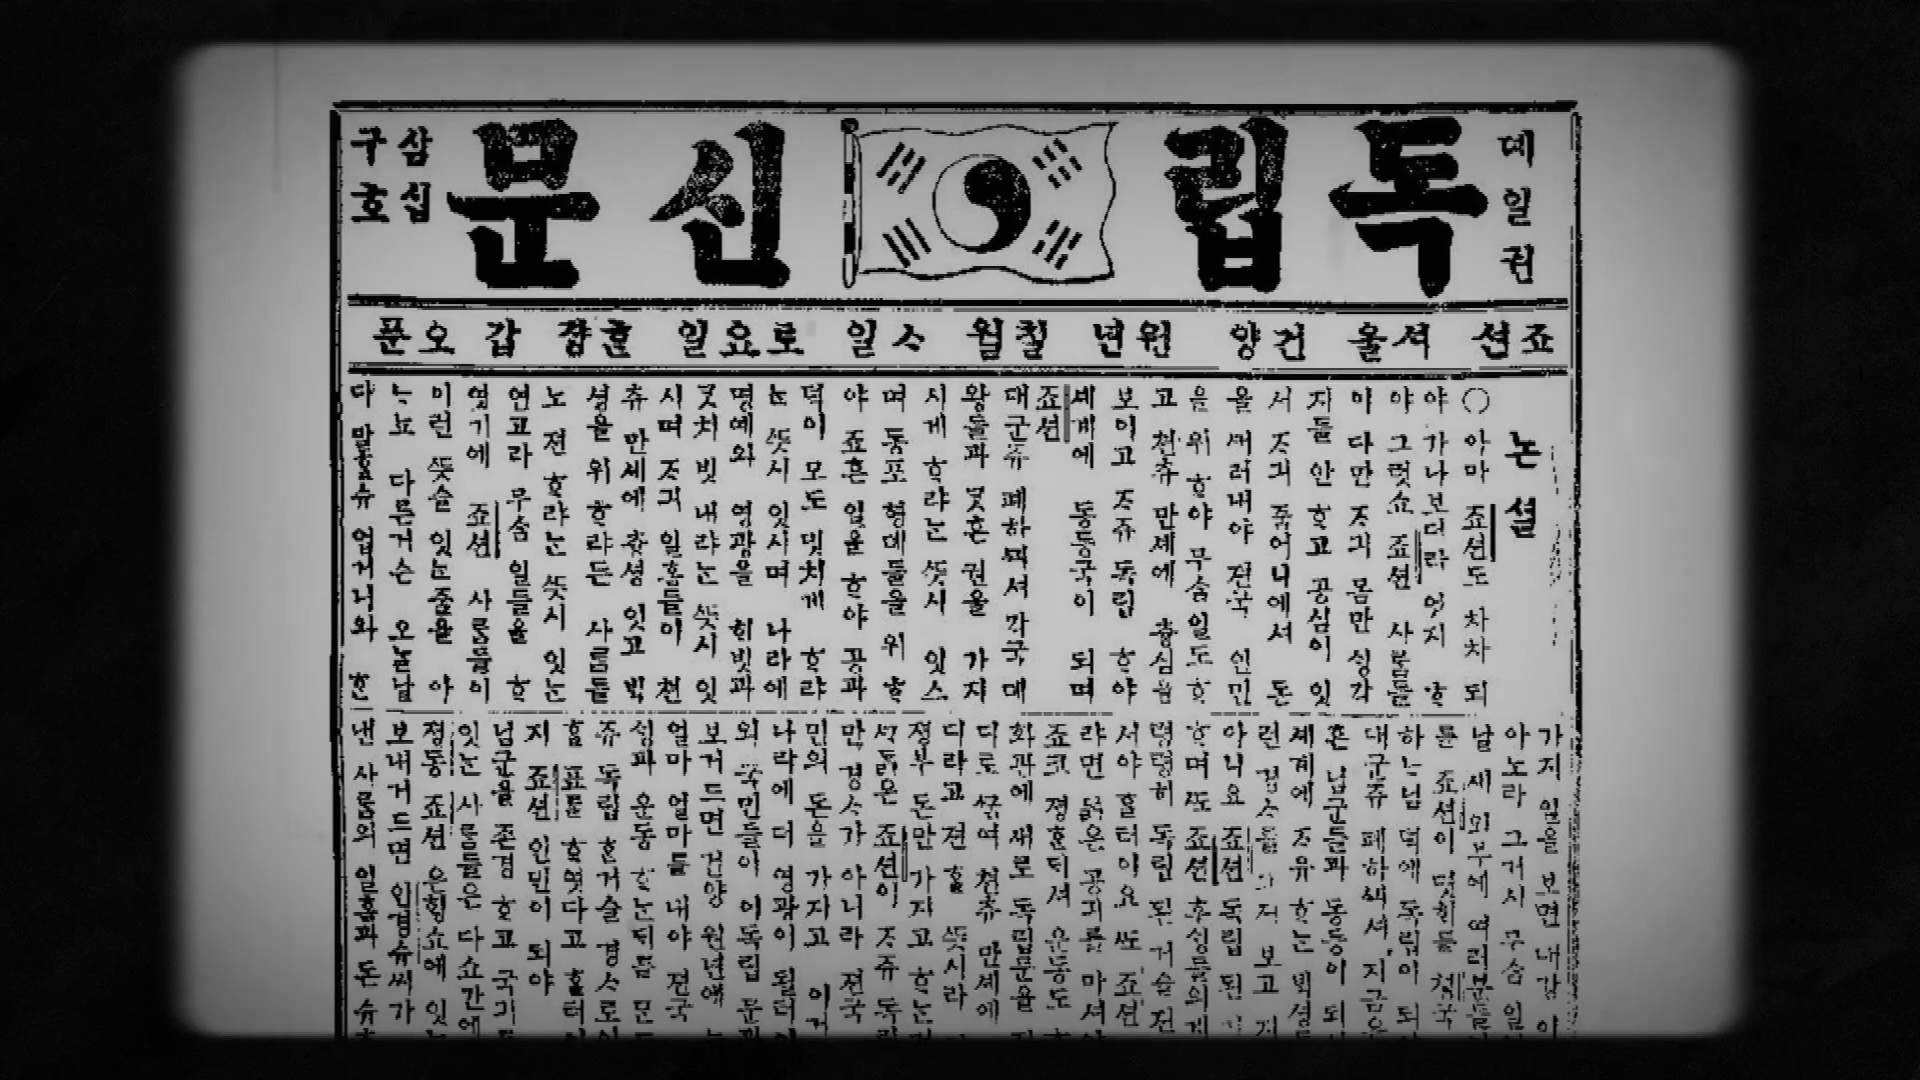 뎨일권
독립신문
삼십
구호
죠션 셔울 건양 원년 칠월 ᄉ일 토요일 ᄒᆞᆫ쟝 갑 오푼
논셜
○ 아마 죠션도 차차 되
야 가나보더라 엇지 ᄒᆞ
야 그럿쇼 죠션 사ᄅᆞᆷ들
이 다만 ᄌᆞ긔 몸만 ᄉᆡᆼ각
지들 안 ᄒᆞ고 공심이 잇
서 ᄌᆞ긔 쥬어니에셔 돈
을 ᄭᅥ러내야 젼국 인민
을 위 ᄒᆞ야 무ᄉᆞᆷ일도 ᄒᆞ
고 쳔츄 만셰에 츙심을
보이고 ᄌᆞ쥬 독립 ᄒᆞ야
셰계에 동등국이 되며
죠션
대군쥬 폐하ᄭᅴ셔 각국 뎨
왕들과 ᄀᆞᆺᄒᆞᆫ 권을 가지
시게 ᄒᆞ랴ᄂᆞᆫ ᄯᅳᆺ시 잇스
며 동포 형뎨들을 위 ᄒᆞ
야 죠흔 일을 ᄒᆞ야 공과
덕이 모도 밋치게 ᄒᆞ랴
ᄂᆞᆫ ᄯᅳᆺ시 잇시며 나라에
명예와 영광을 ᄒᆡ빗과
ᄀᆞᆺ치 빗 내랴ᄂᆞᆫ ᄯᅳᆺ시 잇
시며 ᄌᆞ긔 일홈들이 쳔
츄 만세에 츙셩 잇고 ᄇᆡᆨ
셩을 위 ᄒᆞ랴든 사ᄅᆞᆷ들
노 젼 ᄒᆞ랴ᄂᆞᆫ ᄯᅳᆺ시 잇ᄂᆞᆫ
연고라 무ᄉᆞᆷ 일들을 ᄒᆞ
엿기에 죠션 사ᄅᆞᆷ들이
이런 ᄯᅳᆺ슬 잇ᄂᆞᆫ줄을 아
ᄂᆞ뇨 다른거슨 오ᄂᆞᆯ날
다 말ᄒᆞᆯ슈 업거니와 ᄒᆞᆫ
가지 일을 보면 대강 이
아노라 그거시 무ᄉᆞᆷ 일
날 새
를 죠션이
하ᄂᆞ님 덕에 독립이 되
대군쥬 폐하ᄭᅴ셔 지금은
ᄒᆞᆫ 님군들과 동등이 되
셰계에 ᄌᆞ유 ᄒᆞᄂᆞᆫ ᄇᆡᆨ셩들
런 경ᄉᆞ를 보고
아니요 죠션 독립 된
ᄒᆞ며 ᄯᅩ 죠션 후ᄉᆡᆼ들의게
명명히 독립 된거슬 젼
셔야 ᄒᆞᆯ터이요 ᄯᅩ 죠션
라면 ᄆᆞᆰ은 공긔를 마셔야
죠코 졍ᄒᆞᆫᄃᆡ셔 운동도
화관에 새로 독립문을
ᄃᆡ로 쳔츄 만셰에
디라고 젼ᄒᆞᆯ ᄯᅳᆺ시라
졍부 돈만 가지고 ᄒᆞᄂᆞᆫ
죠션이 ᄌᆞ쥬 독립
만 경ᄉᆞ가 아니라 젼국
민의 돈을 가지고 이거
나라에 더 영광이 될터
외 국민들이 이 독립 문과
보거드면 건양 원년에
얼마 얼마들 내야 젼국
셩과 운동 ᄒᆞᄂᆞᆫᄃᆡ를
쥬 독립 ᄒᆞᆫ거슬 경ᄉᆞ로이
ᄒᆞᆷ 표를 ᄒᆞ엿다고 ᄒᆞᆯ터
지 죠션 인민이 되야
님군을 존경 ᄒᆞ고 국긔
잇ᄂᆞᆫ 사ᄅᆞᆷ들은 다쇼간에
졍동 죠션 은ᄒᆡᆼ쇼에 잇
보내거드면 안경슈씨가
낸 사ᄅᆞᆷ의 일홈과 돈 슈